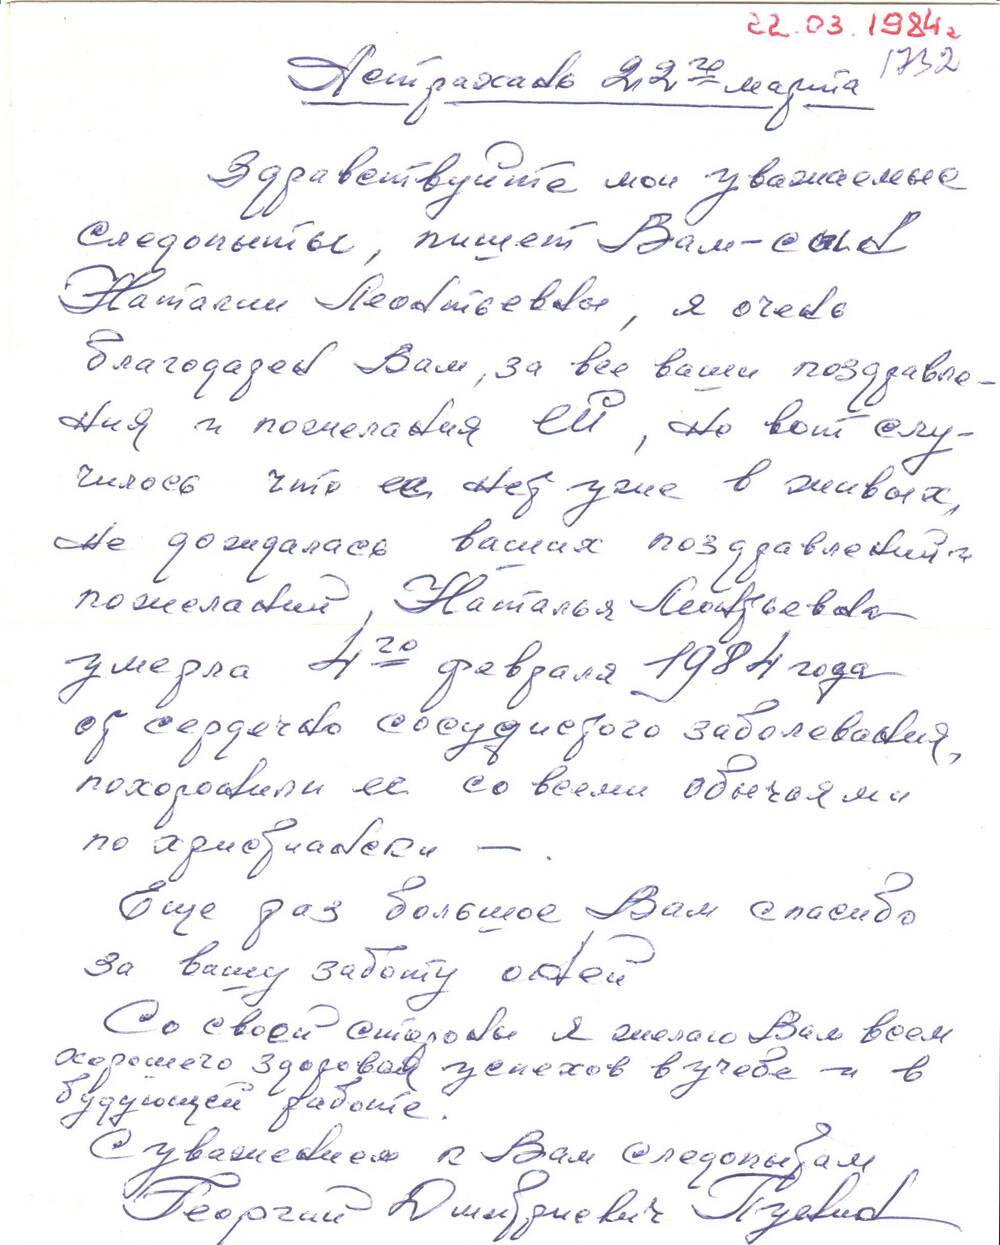 22.03.1984г
1732
Астрахань 22го марта
Здравствуйте мои уважаемые
следопыты, пишет Вам-сын
Наталии Леонтьевны, я очень
благодарен Вам, за все ваши поздравле-
ния и пожелания ей, но вот слу-
чилось что ее нет уже в живых,
не дождалась ваших поздравлений и
пожеланий, Наталья Леонтьевна
умерла 4го февраля 1984 года
от сердечно сосудистого заболевания,
похоронили ее со всеми обычаями
по христиански — .
Еще раз большое Вам спасибо
за вашу заботу о ней
Со своей стороны я желаю Вам всем
хорошего здоровья успехов в учебе и в
будующей работе.
С уважением к Вам следопытам
Георгий Дмитриевич